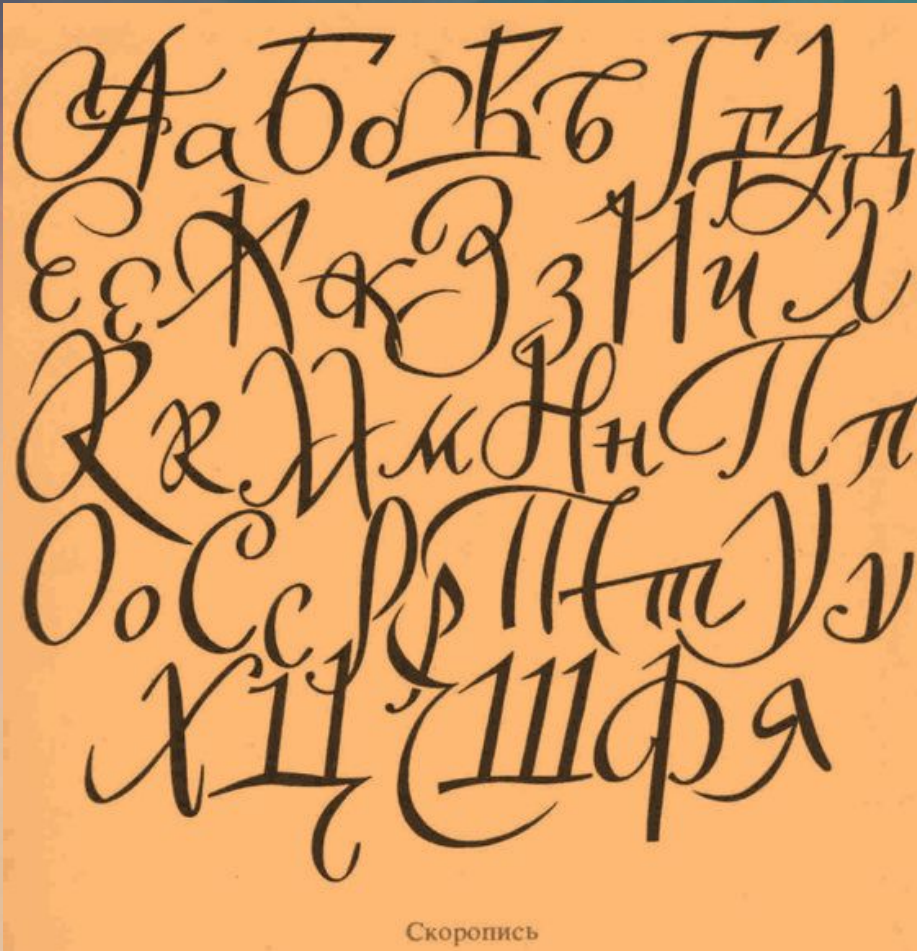 АаБбВвГгДд
ЕеЖжЗзИиЛ
КкМмНнПп
ОоСсРрТтУу
ХЦШФЯ
Скоропись